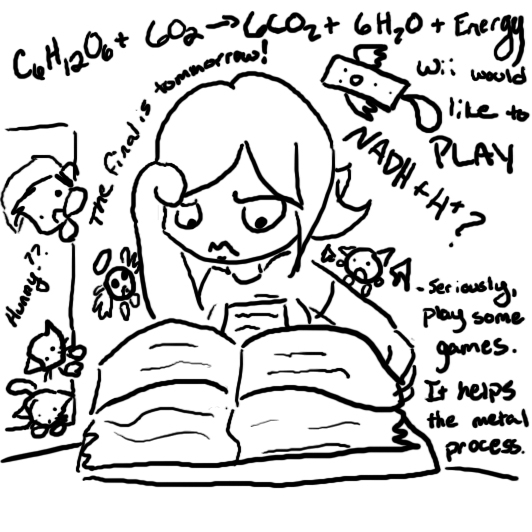 C₆H₁₂O₆ + 6O₂ → 6CO₂ + 6H₂O + Energy
The final is tommorrow!
Wii would
like to
PLAY
NADH + H⁺ ?
Hunny??
- Seriously,
play some
games.
It helps
the metal
process.